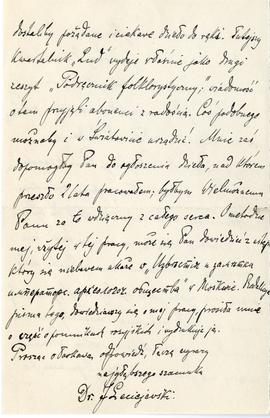 dostaliby pożądane i ciekawe dzieło do ręki. Tutejszy
kwartalnik „Lud" wydaje właśnie jako drugi
zeszyt „Podręcznik folklorystyczny"; wiadomość
o tem przyjęli abonenci z radością. Coś podobnego
możnaby i w Światowicie urządzić. Mnie zaś
dopomógłby Pan do ogłoszenia dzieła, nad którem
przeszło 2 lata pracowałem; byłbym Wielmożnemu
Panu za to wdzięczny z całego serca. O metodzie
mej, użytej w tej pracy, może się Pan dowiedzieć z
który się niebawem ukaże o „Извѣстія и замѣтки
императорс. археолог. общества" w Moskwie. Redakcya
pisma tego, dowiedziawszy się o mej pracy, prosiła mnie
o część o pomnikach rosyjskich i wydrukuje ją.
Prosząc o łaskawą odpowiedź, łączę wyrazy
najgłębszego szacunku
Dr. J. Leciejewski.